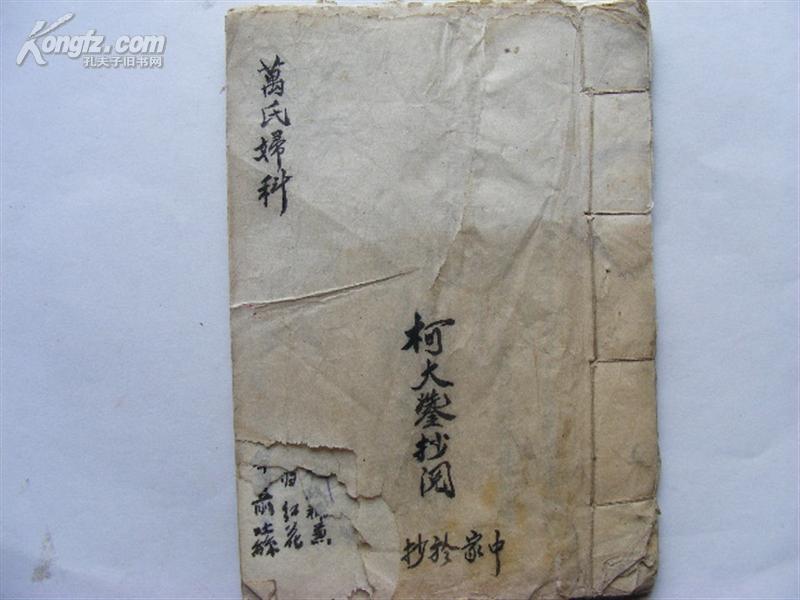 Kongfz.com
孔夫子旧书网
萬氏婦科
柯大鑾抄閱
抄於家中
红花
前吐絲